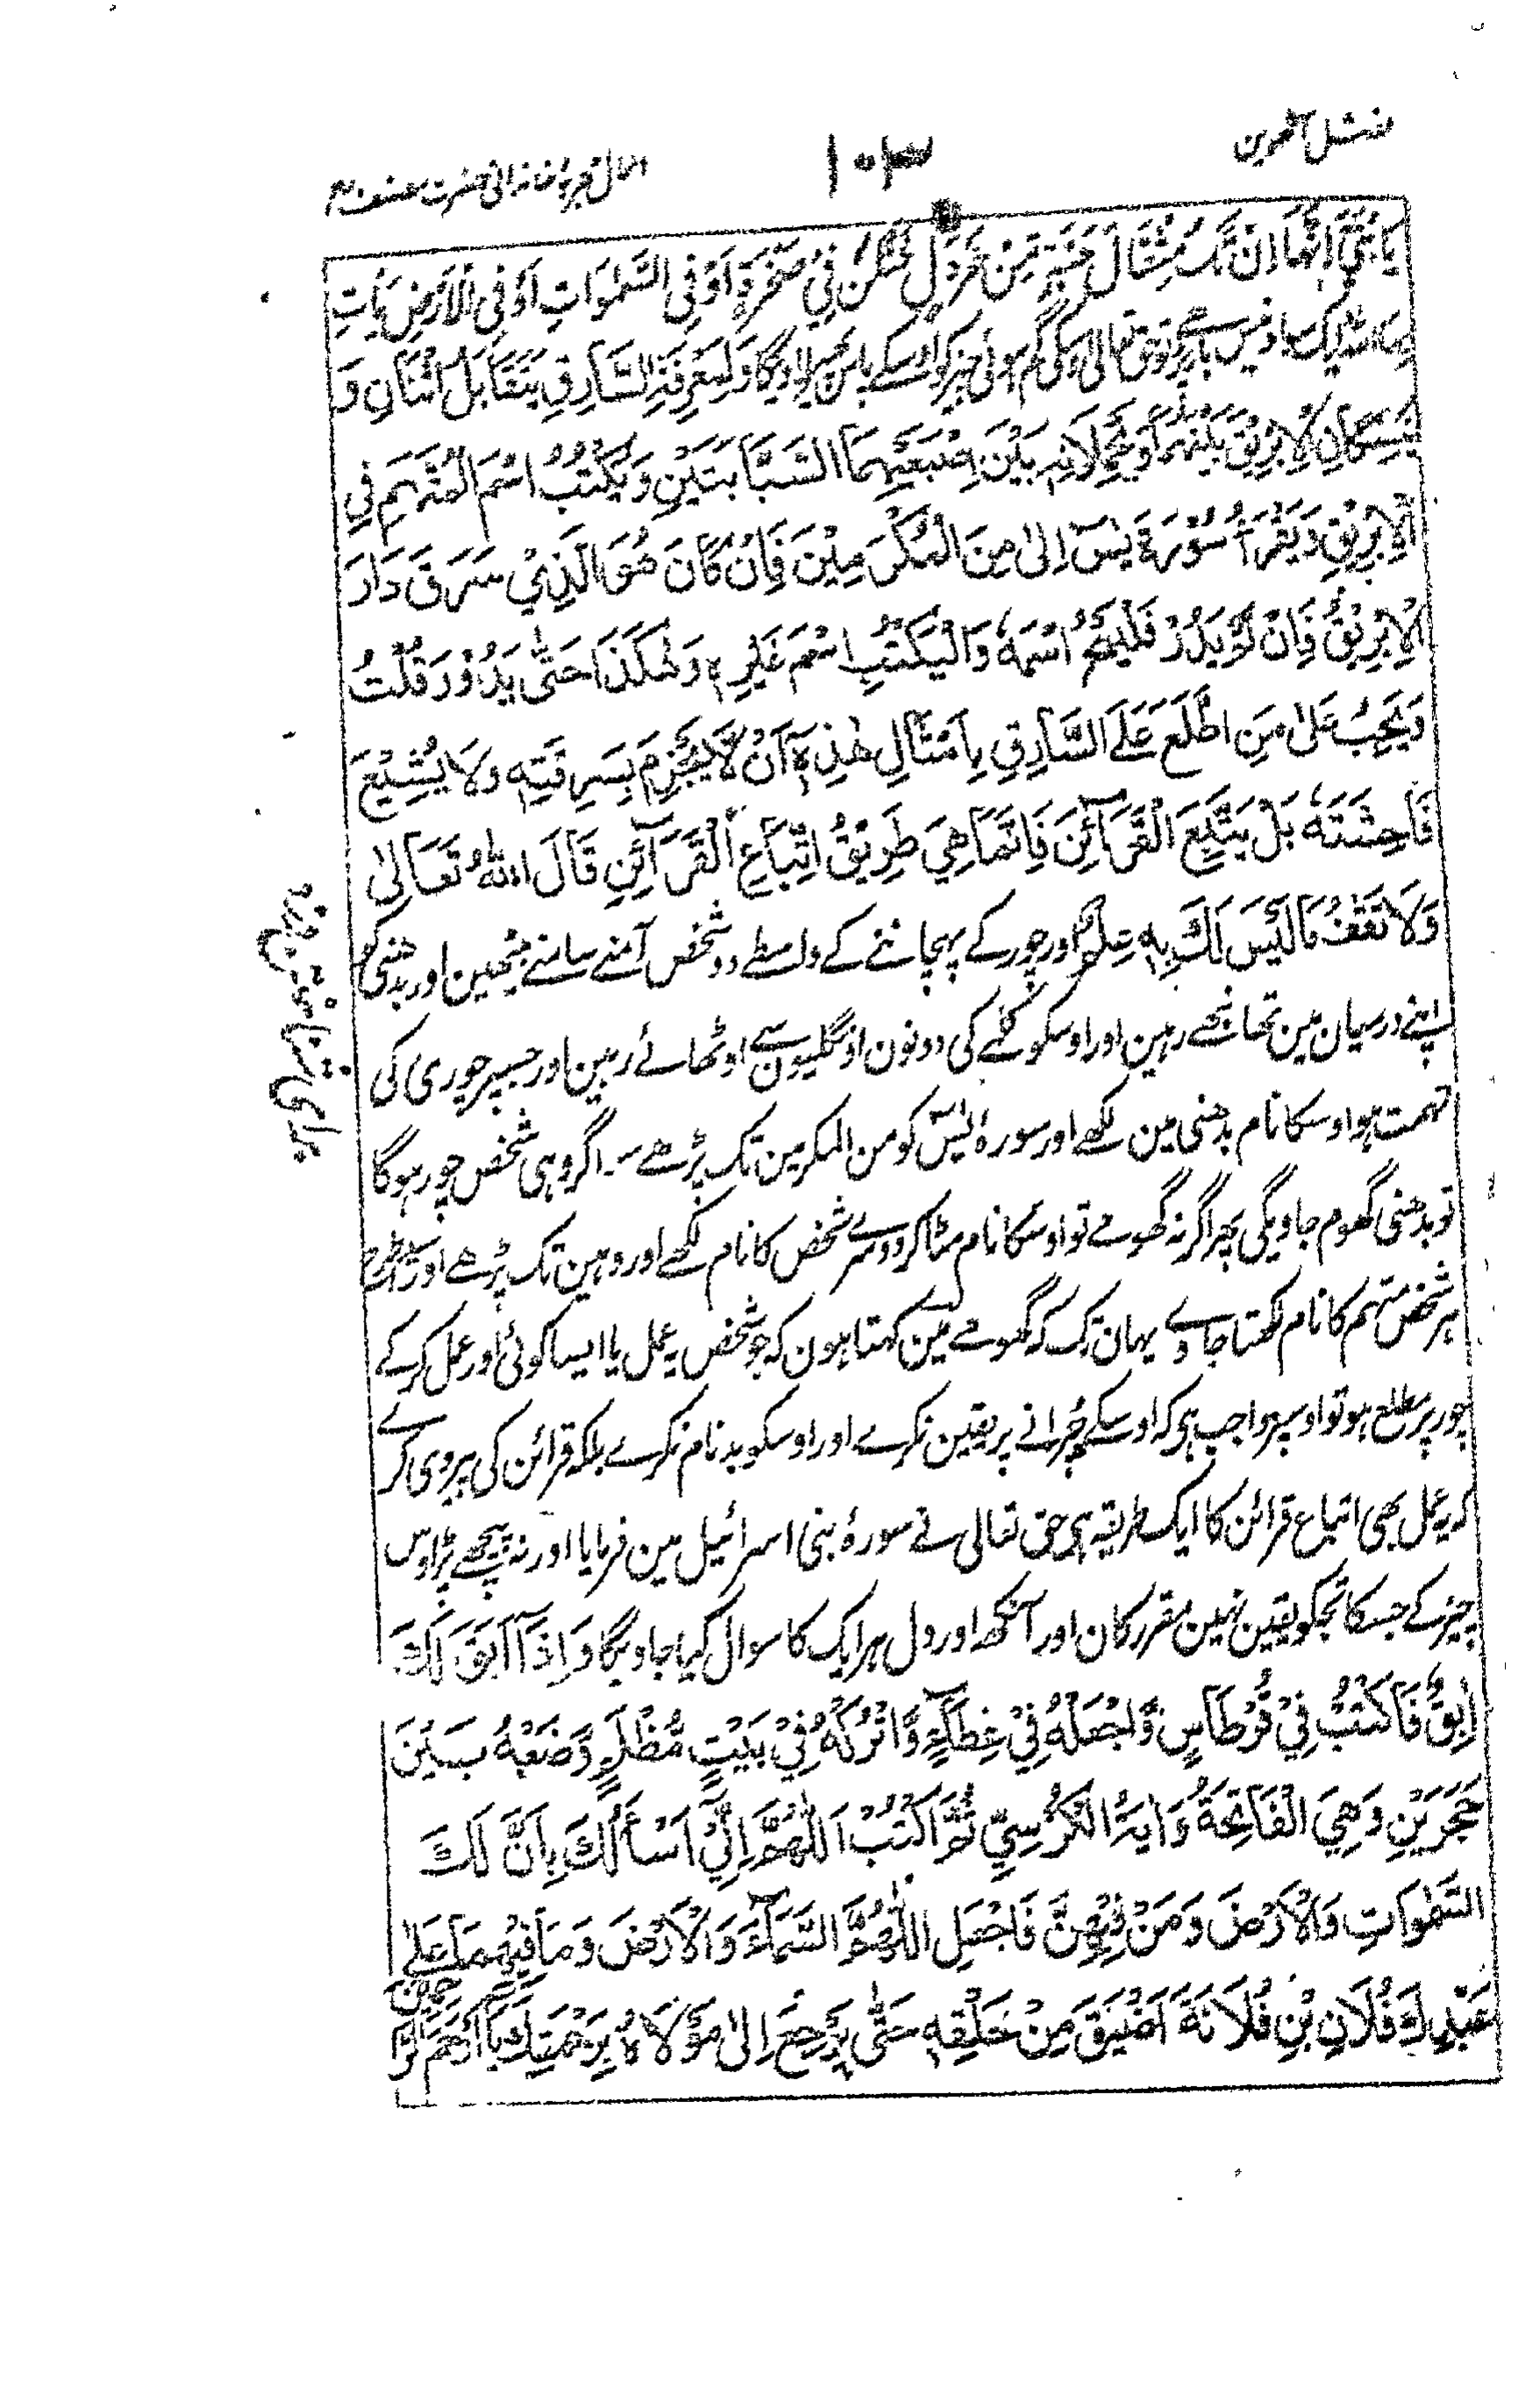 فصل آٹھوین
۱۰۳
اعمال مجربہ خاندانی حضرت مصنف
یَا بُنَیَّ اِنَّهَا اِنْ تَكُ مِثْقَالَ حَبَّةٍ مِّنْ خَرْدَلٍ فَتَكُنْ فِیْ صَخْرَةٍ اَوْ فِی السَّمٰوَاتِ اَوْ فِی الْاَرْضِ یَأْتِ
حق تعالی اوسکی گم ہوئی چیز کو اوسکے پاس پھیر لاویگا وَلِمَعْرِفَةِ السَّارِقِ یَتَقَابَلُ اثْنَانِ وَ
یُمْسِكَانِ الْاِبْرِیْقَ بَیْنَهُمَا وَیَحْمِلَانِهٖ بَیْنَ اِصْبَعَیْهِمَا السَّبَّابَتَیْنِ وَیَكْتُبُ اسْمَ الْمُتَّهَمِ فِی
الْاِبْرِیْقِ وَیَقْرَأُ سُوْرَةَ یٰسٓ اِلٰی مِنَ الْمُكْرَمِیْنَ فَاِنْ كَانَ هُوَ الَّذِیْ سَرَقَ دَارَ
الْاِبْرِیْقُ فَاِنْ لَّمْ یَدُرْ فَلْیَمْحُ اسْمَهٗ وَالْیَكْتُبِ اسْمَ غَیْرِهٖ وَهٰكَذَا حَتّٰی یَدُوْرَ قُلْتُ
وَیَجِبُ عَلٰی مَنِ اطَّلَعَ عَلَی السَّارِقِ بِاَمْثَالِ هٰذِهٖ اَنْ لَّا یَجْزِمَ بِسَرِقَتِهٖ وَلَا یُشِیْعَ
فَاحِشَتَهٗ بَلْ یَتَّبِعَ الْقَرَآئِنَ فَاِنَّمَا هِیَ طَرِیْقُ اتِّبَاعِ الْقَرَآئِنِ قَالَ اللّٰهُ تَعَالٰی
وَلَا تَقْفُ مَا لَیْسَ لَكَ بِهٖ عِلْمٌ اور چور کے پہچاننے کے واسطے دو شخص آمنے سامنے بیٹھین اور بدھنی کو
اپنے درمیان مین تھانبے رہین اور اوسکو کلمے کی دونون اونگلیون سے اوٹھائے رہین اور جسپر چوری کی
تہمت ہو اوسکا نام بدھنی مین لکھے اور سورۂ یٰسٓ کو من المکرمین تک پڑھے ۔ اگر وہی شخص چور ہوگا
تو بدھنی گھوم جاویگی پھر اگر نہ گھومے تو اوسکا نام مٹا کر دوسرے شخص کا نام لکھے اور وہین تک پڑھے اور اسی طرح
ہر شخص متہم کا نام لکھتا جاوے یہان تک کہ گھومے مین کہتا ہون کہ جو شخص یہ عمل یا ایسا کوئی اور عمل کرکے
چور پر مطلع ہو تو اوسپر واجب ہی کہ اوسکے چرانے پر یقین نکرے اور اوسکو بدنام نکرے بلکہ قرائن کی پیروی کرے
کہ یہ عمل بھی اتباع قرائن کا ایک طریقہ ہی حق تعالی نے سورۂ بنی اسرائیل مین فرمایا اور نہ پیچھے پڑ اوس
چیز کے جسکا تجکو یقین نہین مقرر کان اور آنکھ اور دل ہر ایک کا سوال کیا جاویگا وَاِذَا اَبَقَ لَكَ
اٰبِقٌ فَاكْتُبْ فِیْ قِرْطَاسٍ وَّاجْعَلْهُ فِیْ غِطَآءٍ وَّاتْرُكْهُ فِیْ بَیْتٍ مُّظْلِمٍ وَّضَعْهُ بَیْنَ
حَجَرَیْنِ وَهِیَ الْفَاتِحَةُ وَاٰیَةُ الْكُرْسِیِّ ثُمَّ اكْتُبْ اَللّٰهُمَّ اِنِّیْ اَسْاَلُكَ بِاَنَّ لَكَ
السَّمٰوَاتِ وَالْاَرْضَ وَمَنْ فِیْهِنَّ فَاجْعَلِ اللّٰهُمَّ السَّمَآءَ وَالْاَرْضَ وَمَا فِیْهِمَا عَلٰی
عَبْدِكَ فُلَانِ بْنِ فُلَانَةَ اَضْیَقَ مِنْ خَلْقِهٖ حَتّٰی یَرْجِعَ اِلٰی مَوْلَاهُ بِرَحْمَتِكَ یَا اَرْحَمَ الرَّاحِمِیْنَ
برای شناختن دزد